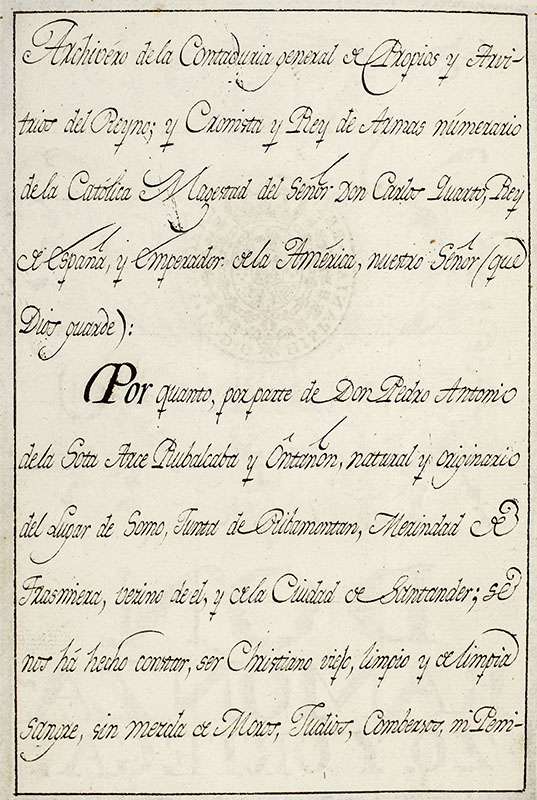 Archivero de la Contaduria general de Propios y Arvi-
trios del Reyno; y Cronista y Rey de Armas númerario
de la Católica Magestad del Señor Don Carlos Quarto, Rey
de España, y Emperador de la América, nuestro Señor (que
Dios guarde):
Por quanto, por parte de Don Pedro Antonio
de la Sota Arce Rubalcaba y Ontañon, natural y originario
del Lugar de Somo, Junta de Ribamontan, Merindad de
Trasmiera, vecino de el, y de la Ciudad de Santander; se
nos há hecho constar, ser Christiano viejo, limpio y de limpia
sangre, sin mezcla de Moros, Judios, Combersos, ni Peni-